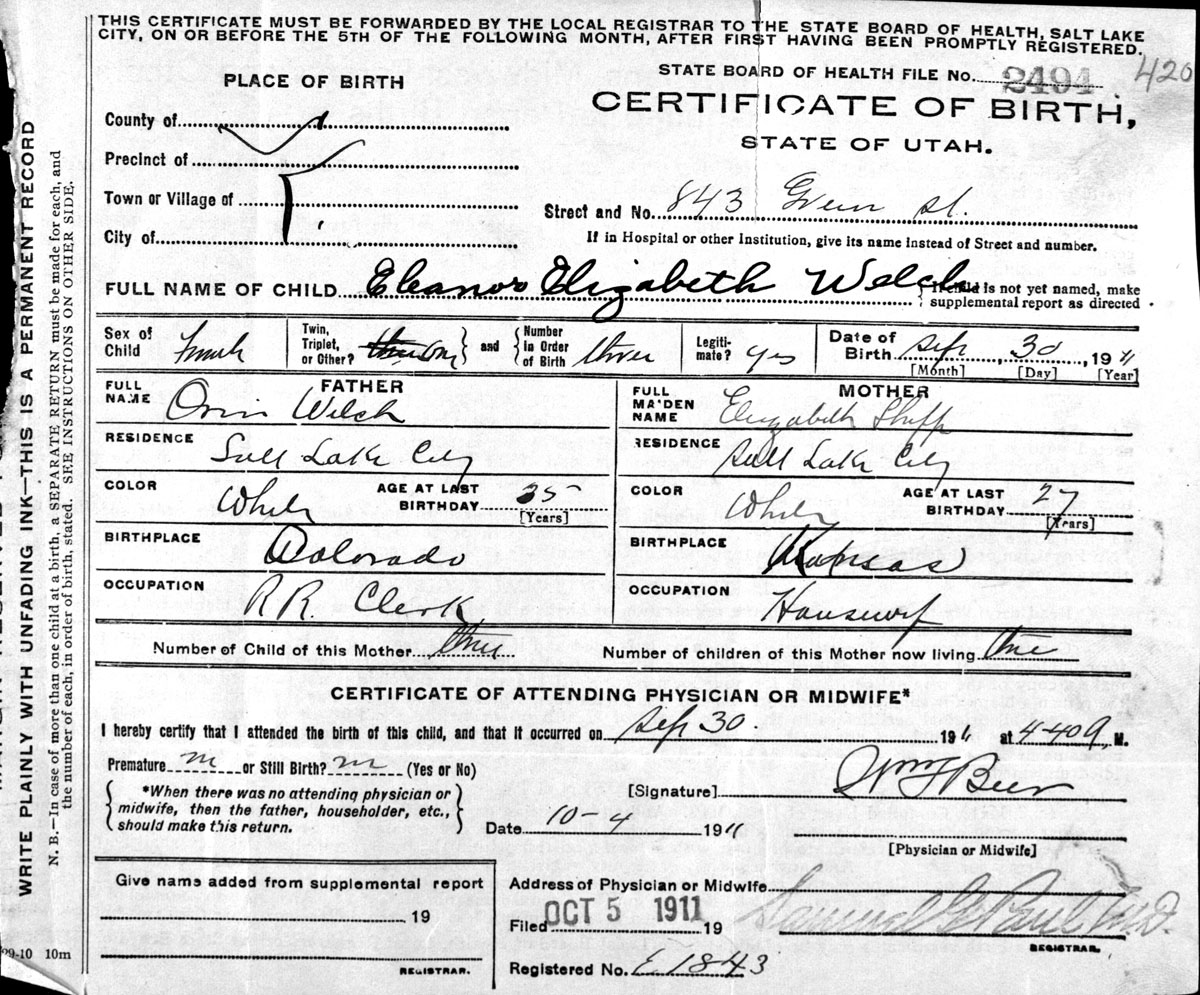 THIS CERTIFICATE MUST BE FORWARDED BY THE LOCAL REGISTRAR TO THE STATE BOARD OF HEALTH, SALT LAKE
CITY, ON OR BEFORE THE 5TH OF THE FOLLOWING MONTH, AFTER FIRST HAVING BEEN PROMPTLY REGISTERED.
420
STATE BOARD OF HEALTH FILE No. 2494
PLACE OF BIRTH
CERTIFICATE OF BIRTH,
STATE OF UTAH.
County of
Precinct of
Town or Village of
City of
Street and No. 843 Green St.
If in Hospital or other Institution, give its name instead of Street and number.
FULL NAME OF CHILD Eleanor Elizabeth Welch
If child is not yet named, make
supplemental report as directed
Sex of Child Female
Twin, Triplet, or Other?
and
Number in Order of Birth three
Legitimate? yes
Date of Birth Sep, 30, 1911
[Month] [Day] [Year]
FATHER
FULL NAME Orin Welch
RESIDENCE Salt Lake City
COLOR White
AGE AT LAST BIRTHDAY 35
[Years]
BIRTHPLACE Colorado
OCCUPATION R R. Clerk
MOTHER
FULL MAIDEN NAME Elizabeth
RESIDENCE Salt Lake City
COLOR White
AGE AT LAST BIRTHDAY 27
[Years]
BIRTHPLACE Kansas
OCCUPATION Housewif
Number of Child of this Mother three
Number of children of this Mother now living three
CERTIFICATE OF ATTENDING PHYSICIAN OR MIDWIFE*
I hereby certify that I attended the birth of this child, and that it occurred on Sep 30. 1911 at 4-40 a, M.
Premature or Still Birth? (Yes or No)
*When there was no attending physician or
midwife, then the father, householder, etc.,
should make this return.
[Signature] Wm F Beer
Date 10-4 1911
[Physician or Midwife]
Give name added from supplemental report
19
REGISTRAR.
Address of Physician or Midwife
Filed OCT 5 1911 19
Samuel G Paul M.D.
REGISTRAR.
Registered No. E 1843
WRITE PLAINLY WITH UNFADING INK—THIS IS A PERMANENT RECORD
N. B.—In case of more than one child at a birth, a SEPARATE RETURN must be made for each, and
the number of each, in order of birth, stated. SEE INSTRUCTIONS ON OTHER SIDE.
09-10 10m